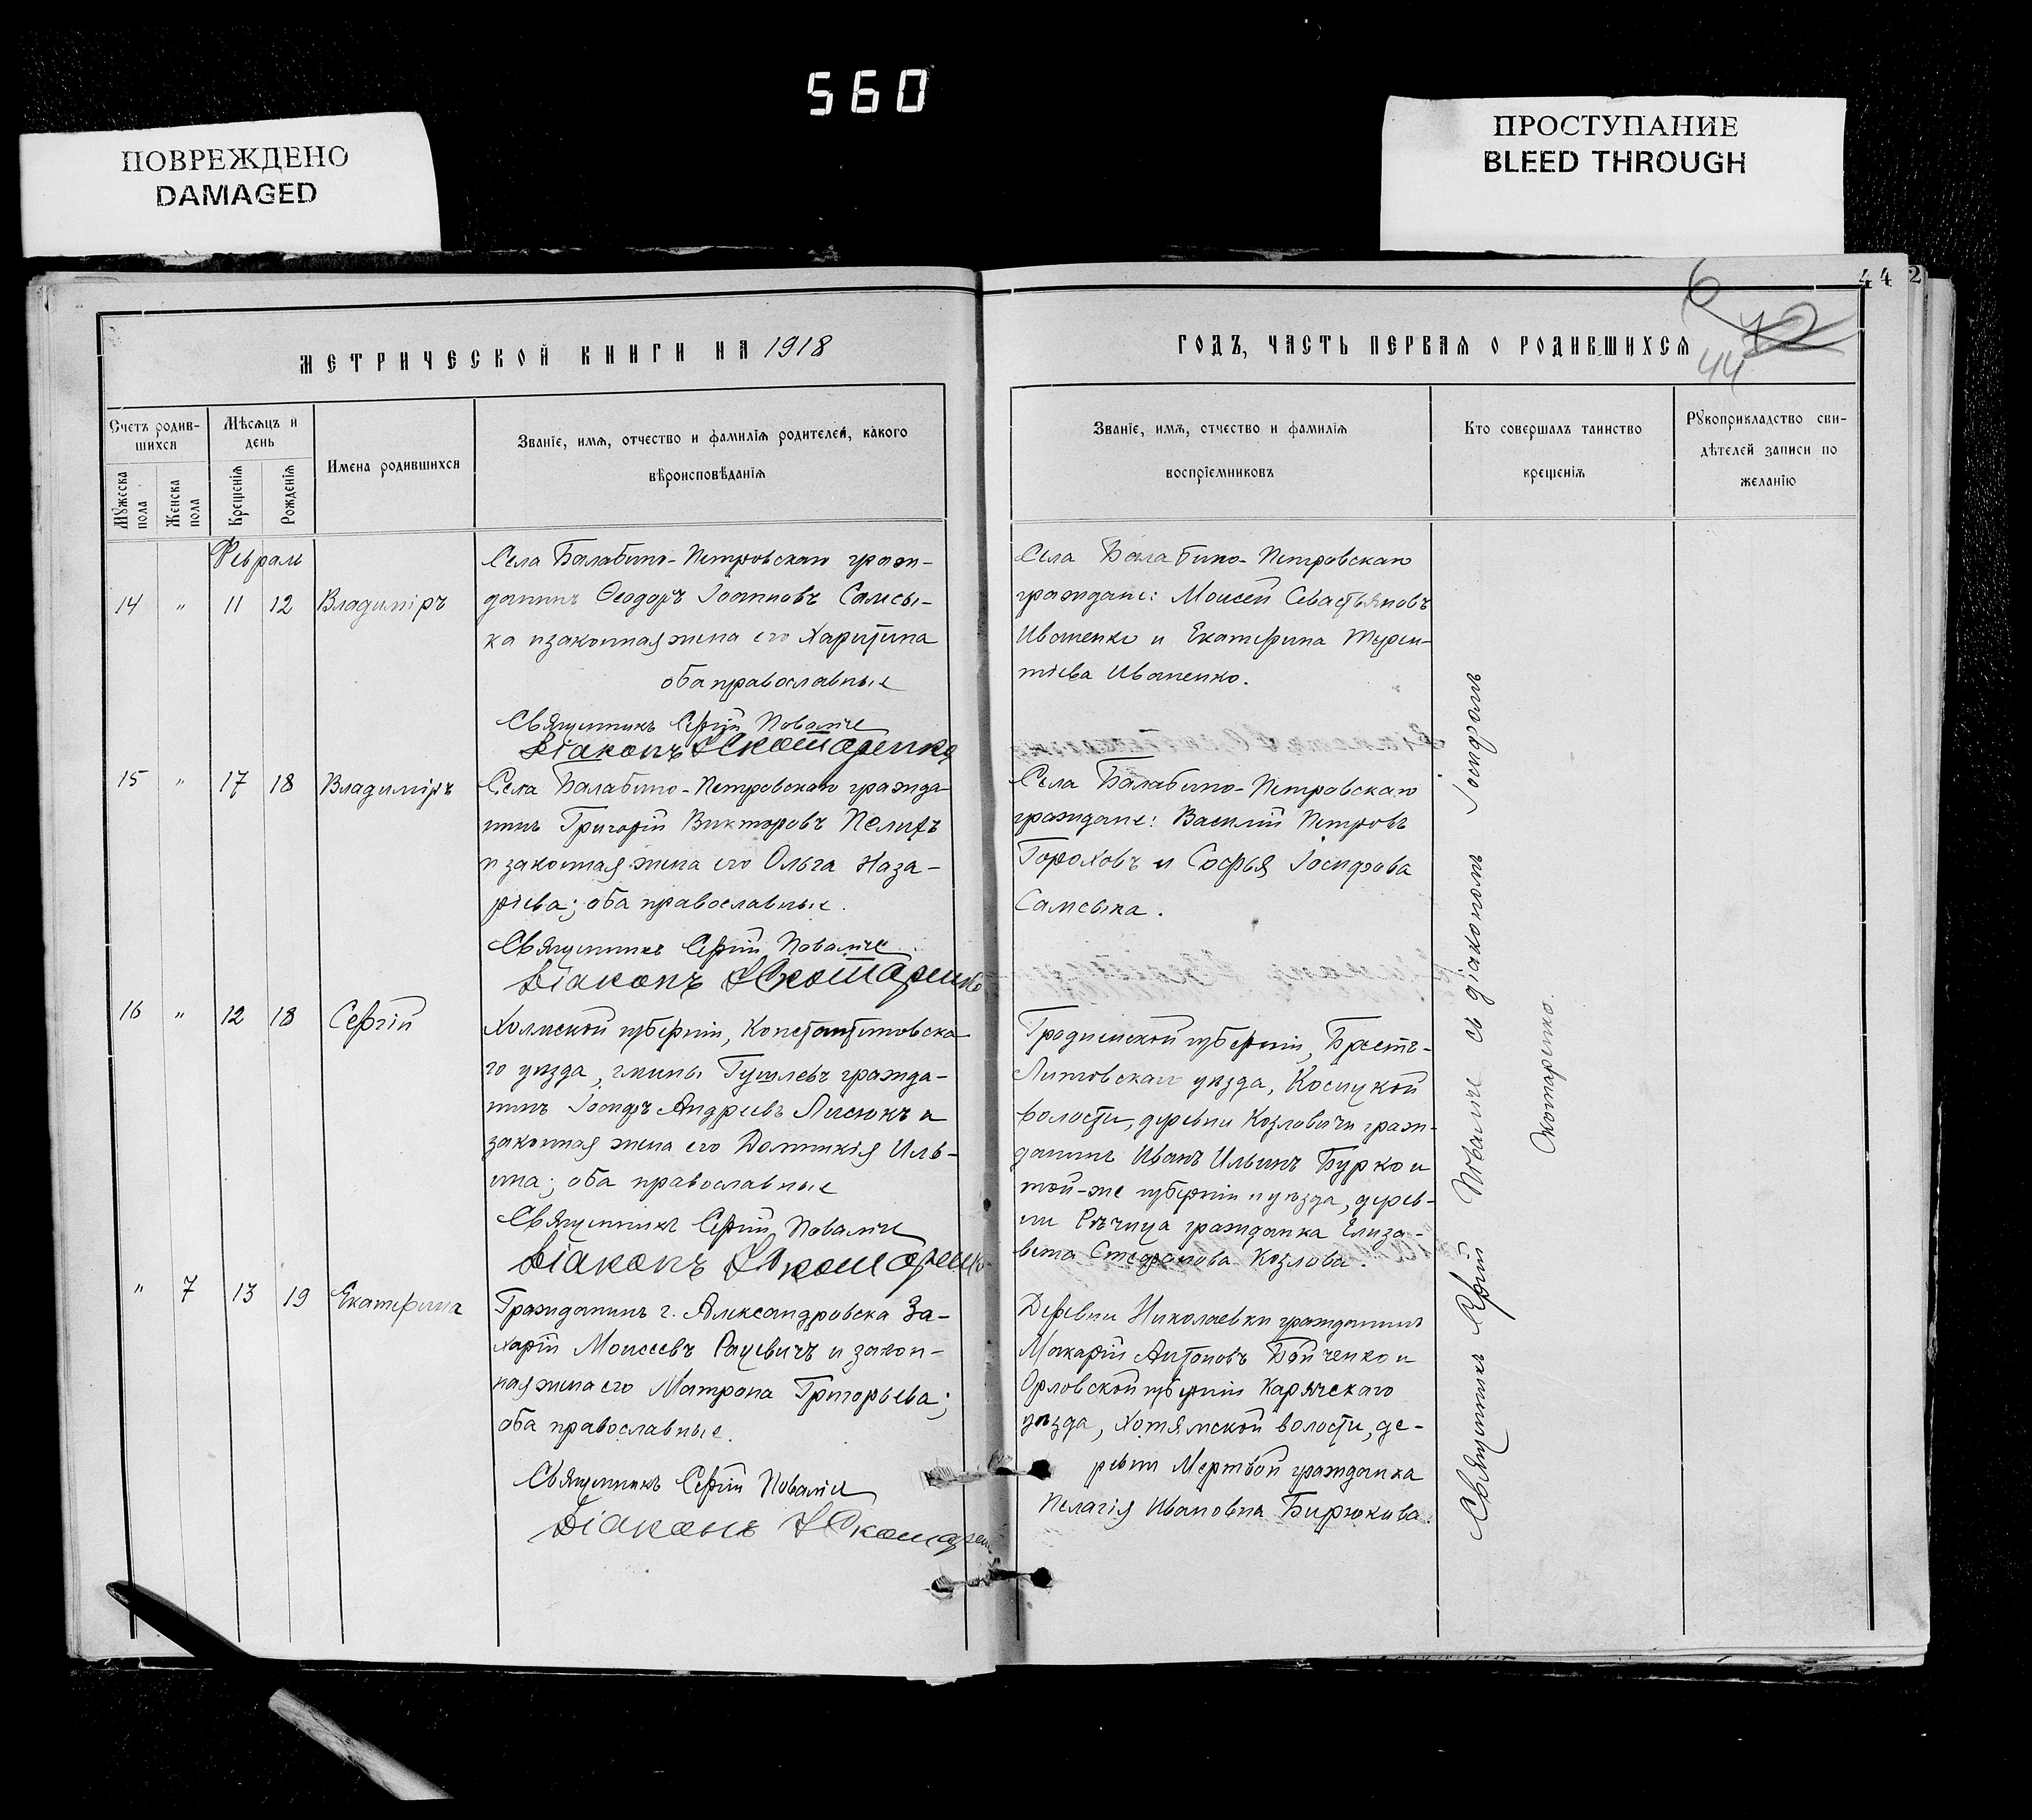 560
ПОВРЕЖДЕНО
DAMAGED
ПРОСТУПАНИЕ
BLEED THROUGH
44 2
6
42
44
МЕТРИЧЕСКОЙ КНИГИ НА 1918
ГОДЪ, ЧАСТЬ ПЕРВАЯ О РОДИВШИХСЯ
Счетъ родив-
шихся
Мѣсяцъ и
день
Мужеска
пола
Женска
пола
Крещенія
Рожденія
Имена родившихся
Званіе, имя, отчество и фамилія родителей, какого
вѣроисповѣданія
Званіе, имя, отчество и фамилія
воспріемниковъ
Кто совершалъ таинство
крещенія
Рукоприкладство сви-
дѣтелей записи по
желанію
Февраль
14 " 11 12 Владиміръ
Села Балабино-Петровскаго граж-
данинъ Ѳеодоръ Іоанновъ Самсы-
ка и законная жена его Харитина
оба православные
Священникъ Сергій
Діаконъ Скотаренко
Села Балабино-Петровскаго
граждане: Моисей Севастьяновъ
Иваненко и Екатерина Терен-
тіева Иваненко.
15 " 17 18 Владиміръ
Села Балабино-Петровскаго гражда-
нинъ Григорій Викторовъ Пелихъ
и законная жена его Ольга Наза-
ріева; оба православные.
Священникъ Сергій
Діаконъ Скотаренко
Села Балабино-Петровскаго
граждане: Василій Петровъ
Гороховъ и Софья Іосифова
Самсыка.
16 " 12 18 Сергій
Холмской губерніи, Константиновска-
го уѣзда, гмины Гушлевъ гражда-
нинъ Іосифъ Андреевъ Лисюкъ и
законная жена его Домникія Иль-
ина; оба православные
Священникъ Сергій
Діаконъ Скотаренко
Гродненской губерніи, Брестъ-
Литовскаго уѣзда, Косицкой
волости, деревни Козловичи граж-
данинъ Иванъ Ильинъ Бурко и
той-же губерніи и уѣзда, дерев-
ни Рѣчица гражданка Елиза-
вета Стефанова Козлова.
" 7 13 19 Екатерина
Гражданинъ г. Александровска За-
харій Моисеевъ Рацевичъ и закон-
ная жена его Матрона Григорьева;
оба православные.
Священникъ Сергій
Діаконъ Скотарен
Деревни Николаевки гражданинъ
Макарій Антоновъ Бойченко и
Орловской губерніи Карачскаго
уѣзда, Хотямской волости, де-
ревни Мертвой гражданка
Пелагія Ивановна Бирюкова.
Священникъ Сергій съ діакономъ
Скотаренко.